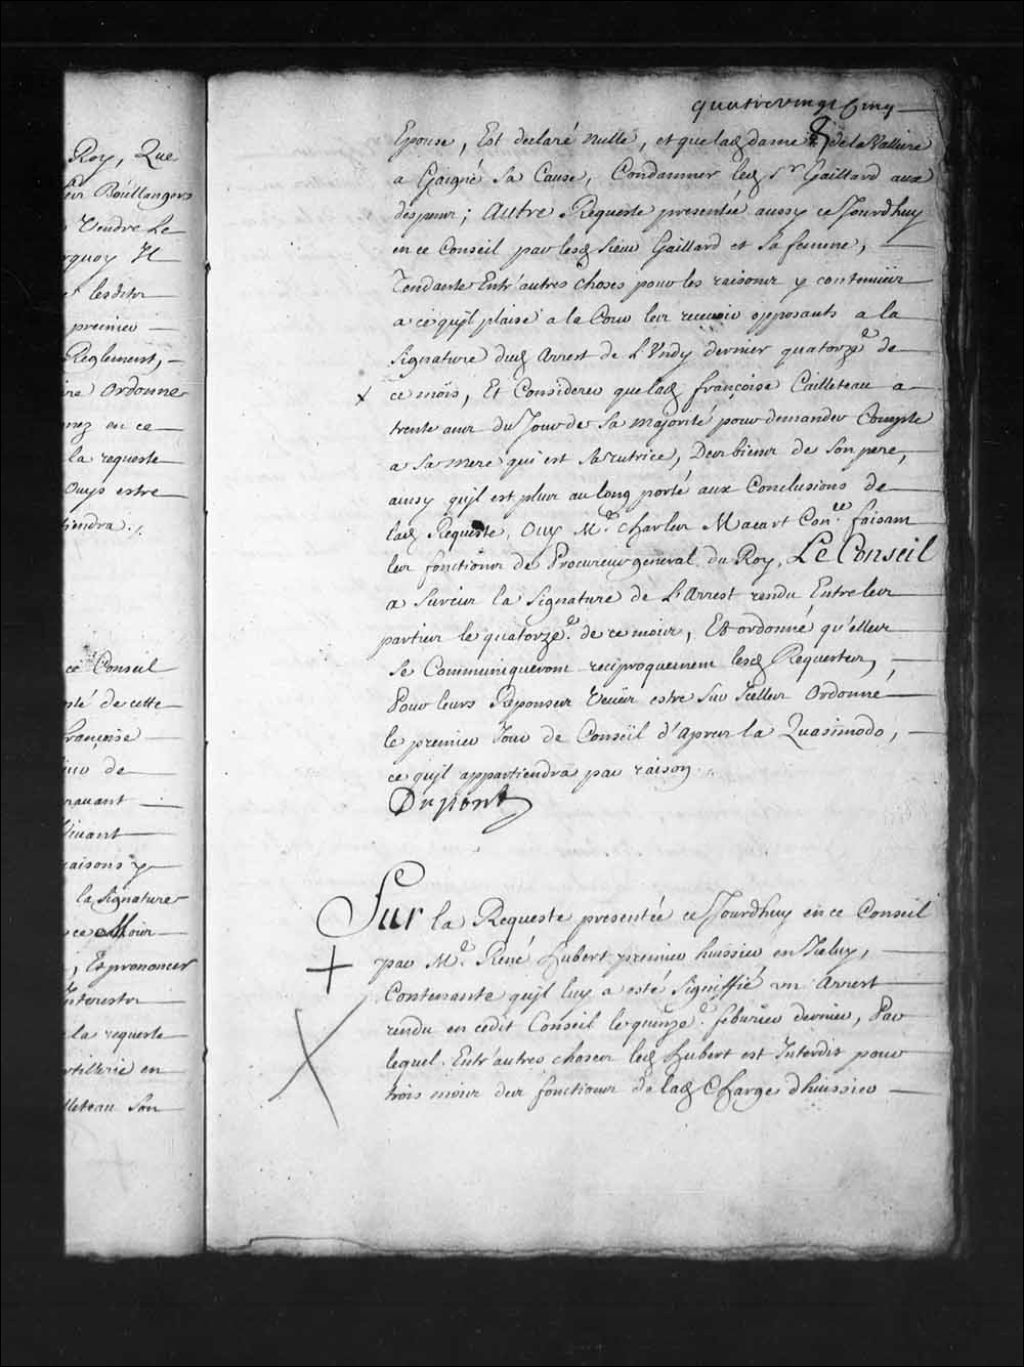 quatrevingt Cinq
Roy, Que
Boüillangers
Vendre Le
lesditz
premier
Reglement,
Ordonne
en ce
la requeste
Ouys estre
ce Conseil
de cette
françoise
de
raisons y
la Signature
ce Mois
, Et prononcer
la requeste
en
Son
Epouse, Est declaré nulle, et que lad dame de la Valliere
a Gaigné Sa Cause, Condamner led Sr Gaillard aux
despens; Autre Requeste presentée aussy ce Jourdhuy
en ce Conseil par lesd Sieur Gaillard et Sa femme,
Tendante Entr'autres choses pour les raisons y contenües
a ce quïl plaise a la Cour les recevoir opposants a la
Signature dud Arrest de Lundy dernier quatorze de
ce mois, Et Considerer que lad françoise Cailleteau a
trente ans du Jour de Sa majorité pour demander Compte
a Sa mere qui est Sa tutrice, Des biens de Son pere,
ainsy qu'jl est plus au long porté aux Conclusions de
lad Requeste, Ouy Me charles Macart Conser faisant
les fonctions de Procureur general du Roy, Le Conseil
a Surcis la Signature de L'Arrest rendu Entre les
parties le quatorze de ce mois, Et ordonné qu'elles
Se Communiqueront reciproquement lesd Requestes,
Pour leurs Reponses veües estre Sur Jcelles Ordonné
le premier Jour de Conseil d'Apres la Quasimodo,
ce qu'jl appartiendra par raison.
Dupont
Sur la Requeste presentée ce Jourdhuy en ce Conseil
par Me René hubert premier huissier en Jceluy,
Contenante qu'jl luy a esté Signiffié un Arrest
rendu en cedit Conseil le quinze feburier dernier, Par
lequel Entr'autres choses led hubert est Interdit pour
trois mois des fonctions de lad Charge d'huissier